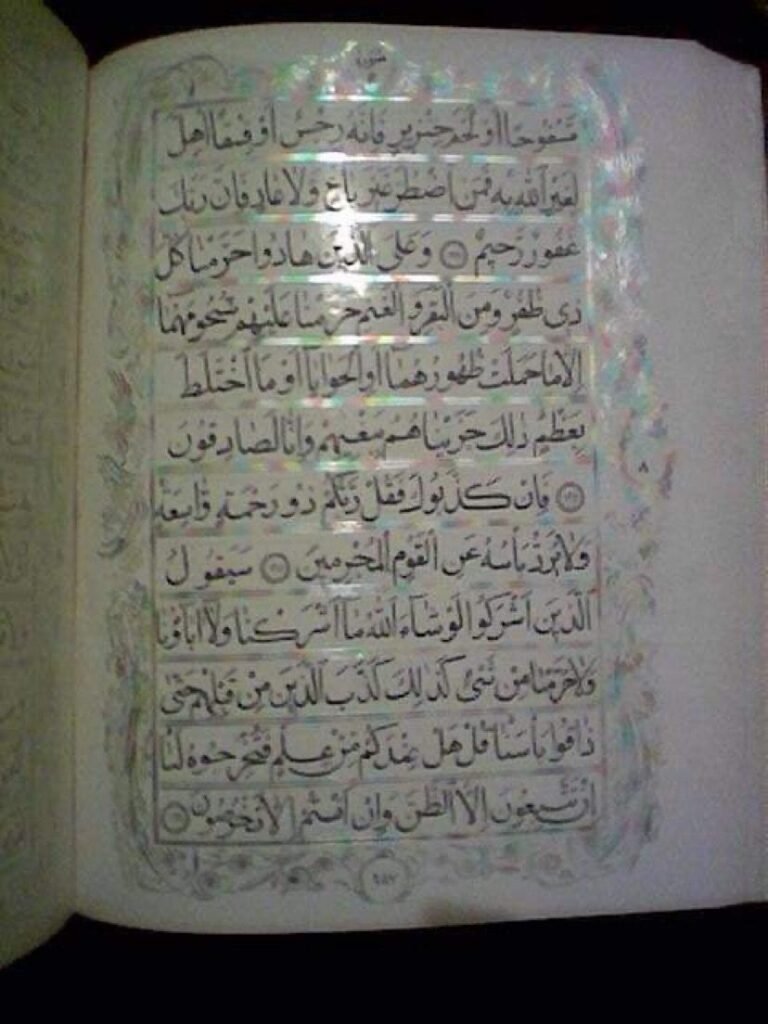 سورة
مَسْفُوحًا أَوْ لَحْمَ خِنْزِيرٍ فَإِنَّهُ رِجْسٌ أَوْ فِسْقًا أُهِلَّ
لِغَيْرِ اللَّهِ بِهِ فَمَنِ اضْطُرَّ غَيْرَ بَاغٍ وَلَا عَادٍ فَإِنَّ رَبَّكَ
غَفُورٌ رَحِيمٌ ﴿١٤٥﴾ وَعَلَى الَّذِينَ هَادُوا حَرَّمْنَا كُلَّ
ذِي ظُفُرٍ وَمِنَ الْبَقَرِ وَالْغَنَمِ حَرَّمْنَا عَلَيْهِمْ شُحُومَهُمَا
إِلَّا مَا حَمَلَتْ ظُهُورُهُمَا أَوِ الْحَوَايَا أَوْ مَا اخْتَلَطَ
بِعَظْمٍ ذَلِكَ جَزَيْنَاهُمْ بِبَغْيِهِمْ وَإِنَّا لَصَادِقُونَ
﴿١٤٦﴾ فَإِنْ كَذَّبُوكَ فَقُلْ رَبُّكُمْ ذُو رَحْمَةٍ وَاسِعَةٍ
وَلَا يُرَدُّ بَأْسُهُ عَنِ الْقَوْمِ الْمُجْرِمِينَ ﴿١٤٧﴾ سَيَقُولُ
الَّذِينَ أَشْرَكُوا لَوْ شَاءَ اللَّهُ مَا أَشْرَكْنَا وَلَا آبَاؤُنَا
وَلَا حَرَّمْنَا مِنْ شَيْءٍ كَذَلِكَ كَذَّبَ الَّذِينَ مِنْ قَبْلِهِمْ حَتَّى
ذَاقُوا بَأْسَنَا قُلْ هَلْ عِنْدَكُمْ مِنْ عِلْمٍ فَتُخْرِجُوهُ لَنَا
إِنْ تَتَّبِعُونَ إِلَّا الظَّنَّ وَإِنْ أَنْتُمْ إِلَّا تَخْرُصُونَ ﴿١٤٨﴾
٨